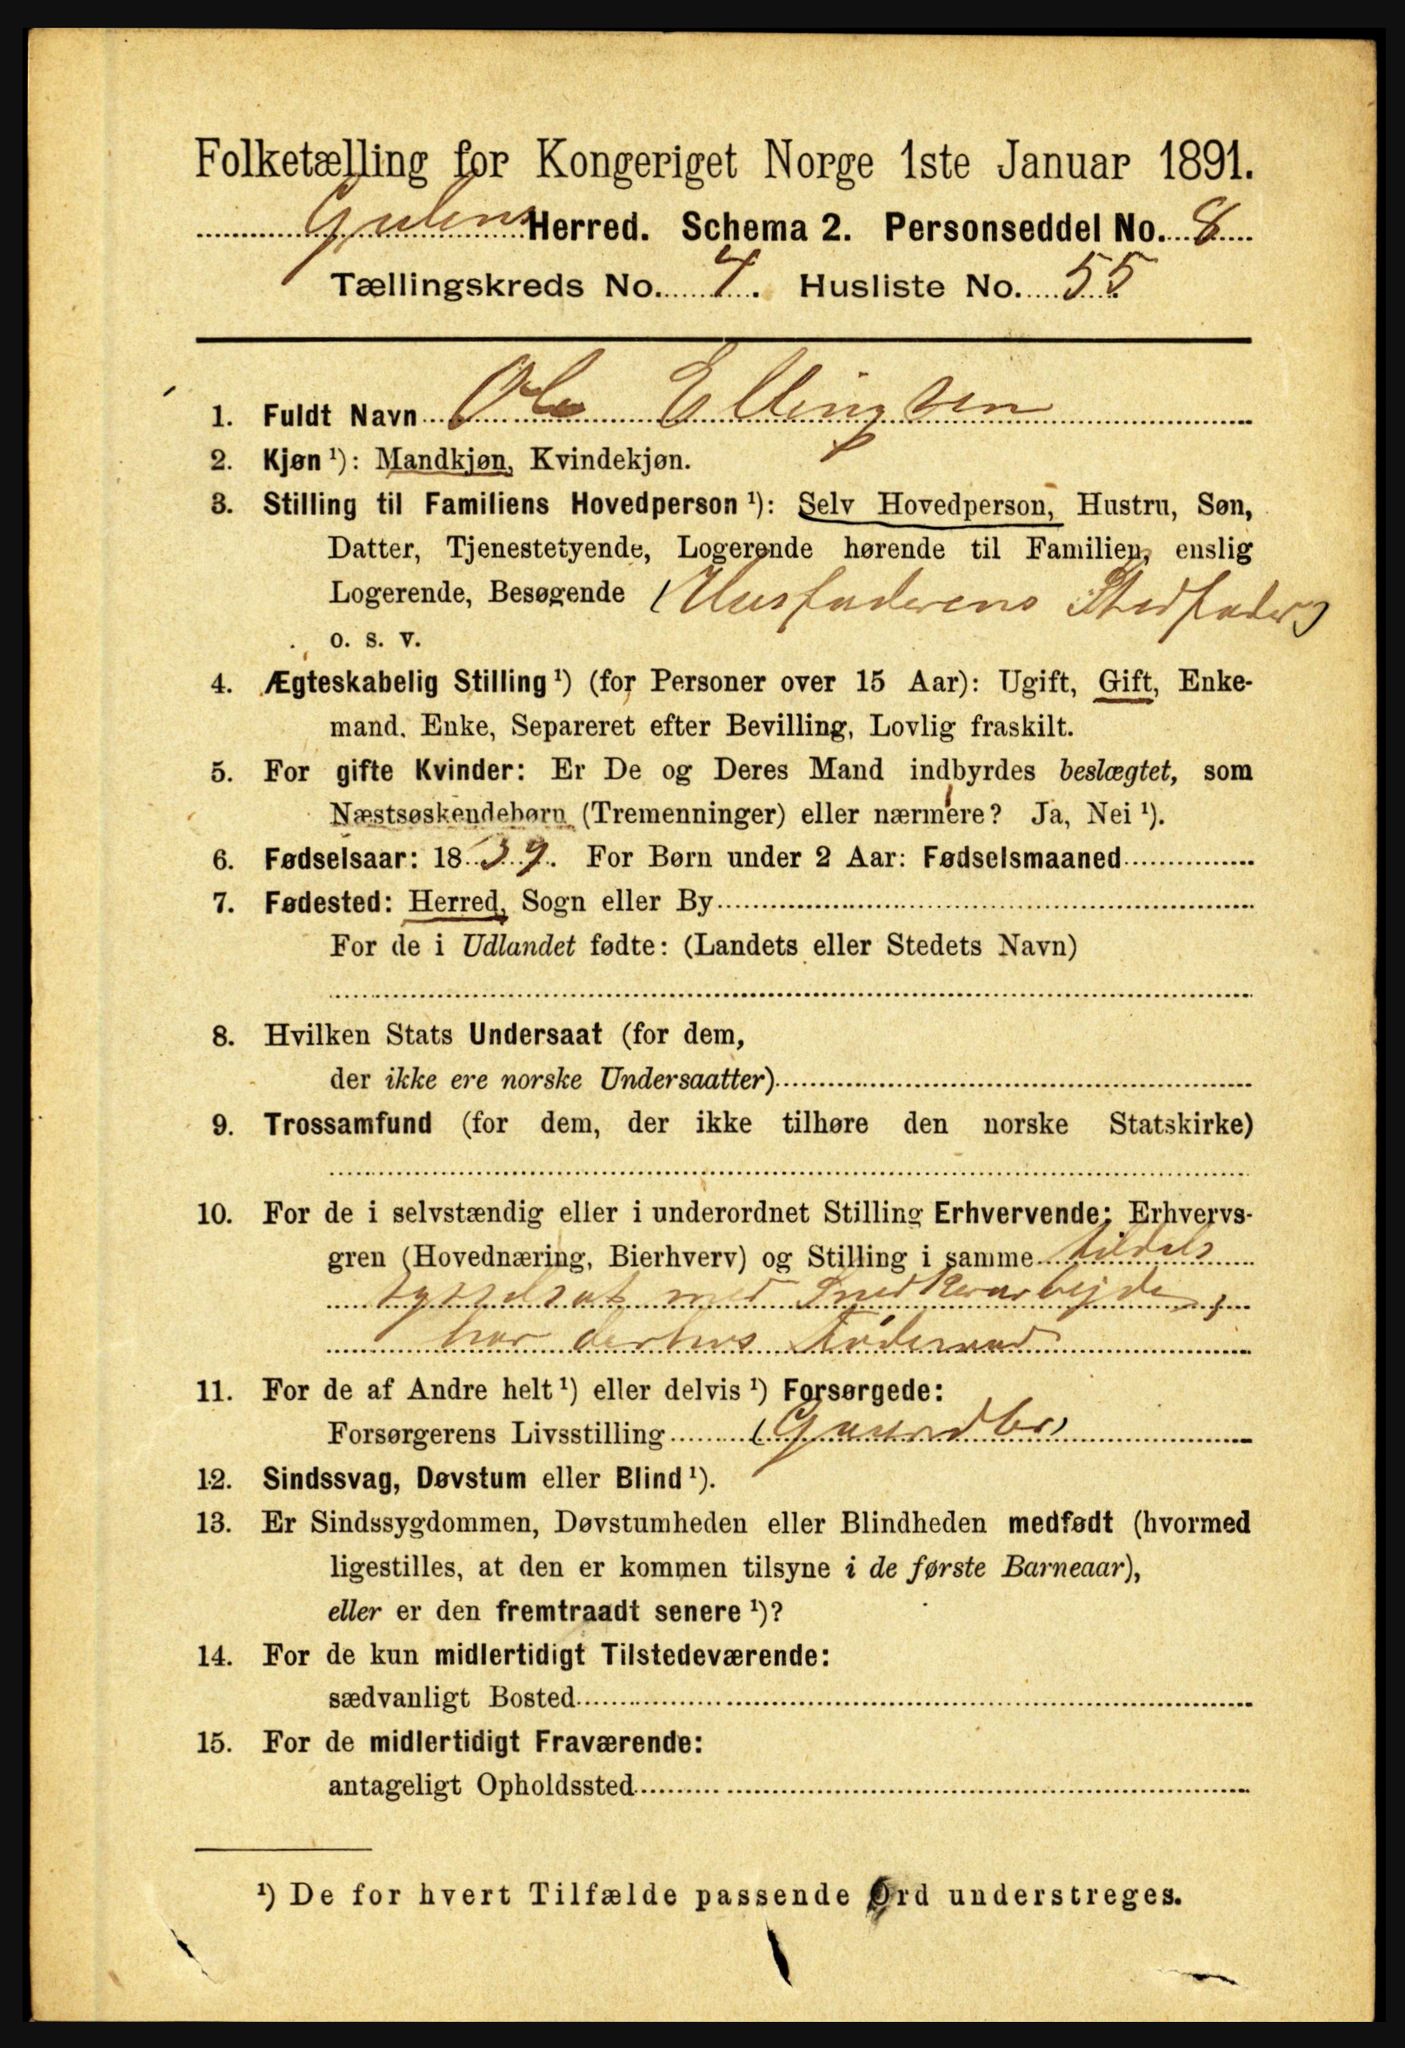 Folketælling for Kongeriget Norge 1ste Januar 1891.
Gulens Herred. Schema 2. Personseddel No. 8
Tællingskreds No. 4. Husliste No. 55
1. Fuldt Navn Ole Ellingsen
2. Kjøn ¹): Mandkjøn, Kvindekjøn.
3. Stilling til Familiens Hovedperson ¹): Selv Hovedperson, Hustru, Søn,
Datter, Tjenestetyende, Logerende hørende til Familien, enslig
Logerende, Besøgende (Husfaderens Stedfader)
o. s. v.
4. Ægteskabelig Stilling ¹) (for Personer over 15 Aar): Ugift, Gift, Enke-
mand. Enke, Separeret efter Bevilling, Lovlig fraskilt.
5. For gifte Kvinder: Er De og Deres Mand indbyrdes beslægtet, som
Næstsøskendebørn (Tremenninger) eller nærmere? Ja, Nei ¹).
6. Fødselsaar: 1839. For Børn under 2 Aar: Fødselsmaaned
7. Fødested: Herred, Sogn eller By
For de i Udlandet fødte: (Landets eller Stedets Navn)
8. Hvilken Stats Undersaat (for dem,
der ikke ere norske Undersaatter)
9. Trossamfund (for dem, der ikke tilhøre den norske Statskirke)
10. For de i selvstændig eller i underordnet Stilling Erhvervende: Erhvervs-
gren (Hovednæring, Bierhverv) og Stilling i samme tildels
sysselsat med Snedkerarbejde,
har derhos Føderaad
11. For de af Andre helt ¹) eller delvis ¹) Forsørgede:
Forsørgerens Livsstilling (Gaardbr)
12. Sindssvag, Døvstum eller Blind ¹).
13. Er Sindssygdommen, Døvstumheden eller Blindheden medfødt (hvormed
ligestilles, at den er kommen tilsyne i de første Barneaar),
eller er den fremtraadt senere ¹)?
14. For de kun midlertidigt Tilstedeværende:
sædvanligt Bosted
15. For de midlertidigt Fraværende:
antageligt Opholdssted
¹) De for hvert Tilfælde passende Ord understreges.